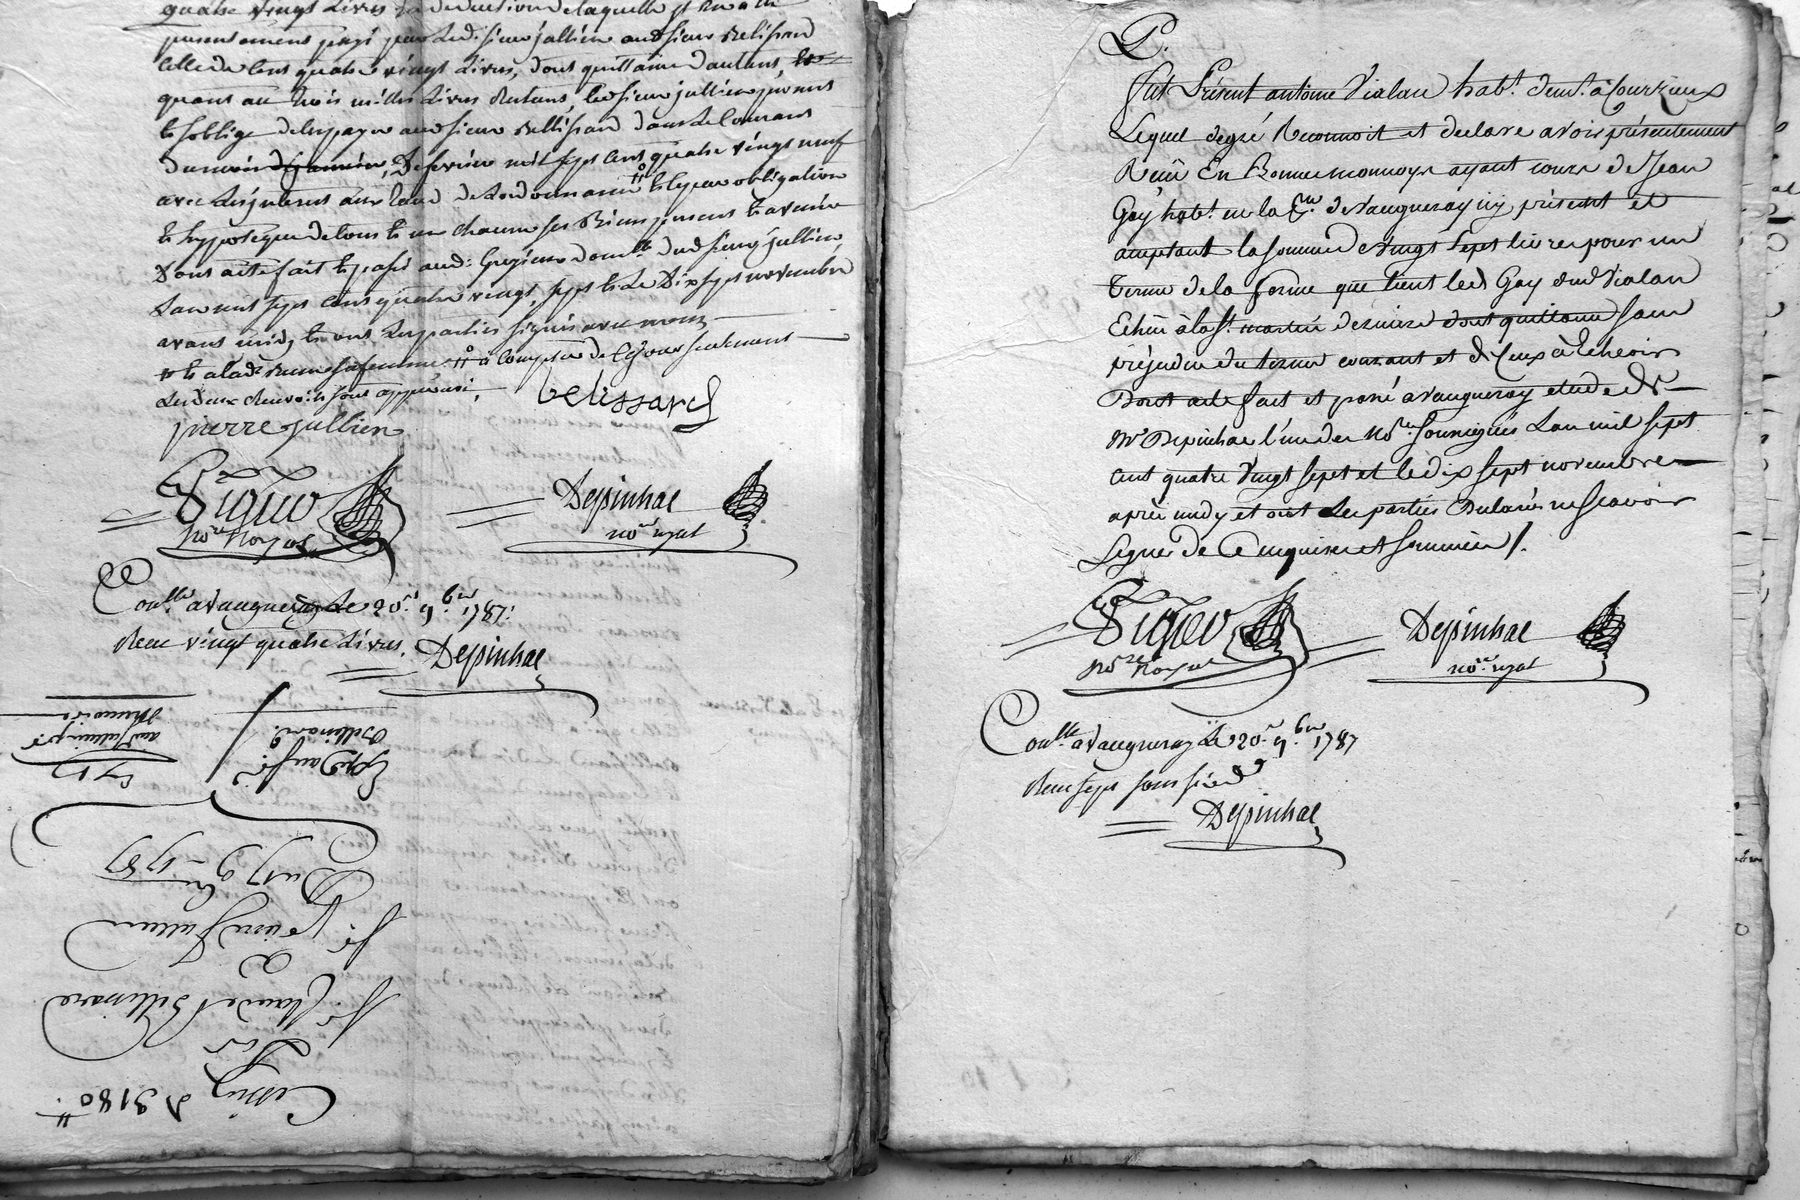 quatre vingt Livres en deduction de laquelle il en a eté
presentement payé par Led. sieur jullien aud sieur Belissard
celle de Cent quatre vingt Livres, dont quittance d'autant, et
quant au trois milles Livres Restans, led sieur jullien promet
et soblige de les payer aud sieur Bellissard dans le Courant
du mois de janvier, De fevrier mil sept cent quatre vingt neuf
avec Les interets aux taux de L'ordonnance # et sous obligation
et hypoteque de tous et un chacun ses Biens presens et avenir
Dont acte fait et passé aud: Grezieu domlle dud sieur jullien
Lan mil sept cent quatre vingt sept et Le Dix sept novembre
avant midy et ont Les parties signés avec nous
# à Compter de Ce jour seulement
Les deux Renvois sont approuvé,
belissard
pierre jullien
nore Royal
Depinhac
nore royal
Conllé a Vaugneray Le 20. 9.bre 1787.
Recu vingt quatre Livres.
Depinhac
Expé aud sr
Bellissard.
aud jullien pr
Memoire
Du 17 9bre 1787
Sr Pierre Jullien
a
Sr Claude Bellissard
Pour
Cession de 3180.tt
P.
Fut Présent antoine Vialau habt. demt. à Courzieux
Lequel de gré Reconnoit et declare avoir présentement
Reçu En Bonne monnoye ayant cours de Jean
Gay habt. en la Pse. de Vaugneray icy présent et
acceptant la somme de vingt sept livres pour un
terme de la ferme que tient led Gay dud Vialau
Echu à la St. martin derniere dont quittance sans
préjudice du terme courant et de Ceux à Echeoir
Dont acte fait et passé a Vaugneray etude de
Me Depinhac l'un des Nores. soussignés Lan mil sept
cent quatre vingt sept et le dix sept novembre
après midy et ont Les parties Declarés ne scavoir
signer de Ce enquises et sommées /.
nore Royal
Depinhac
nore. royal
Conllé a Vaugneray Le 20. 9.bre 1787
Recu sept sous six d
Depinhac